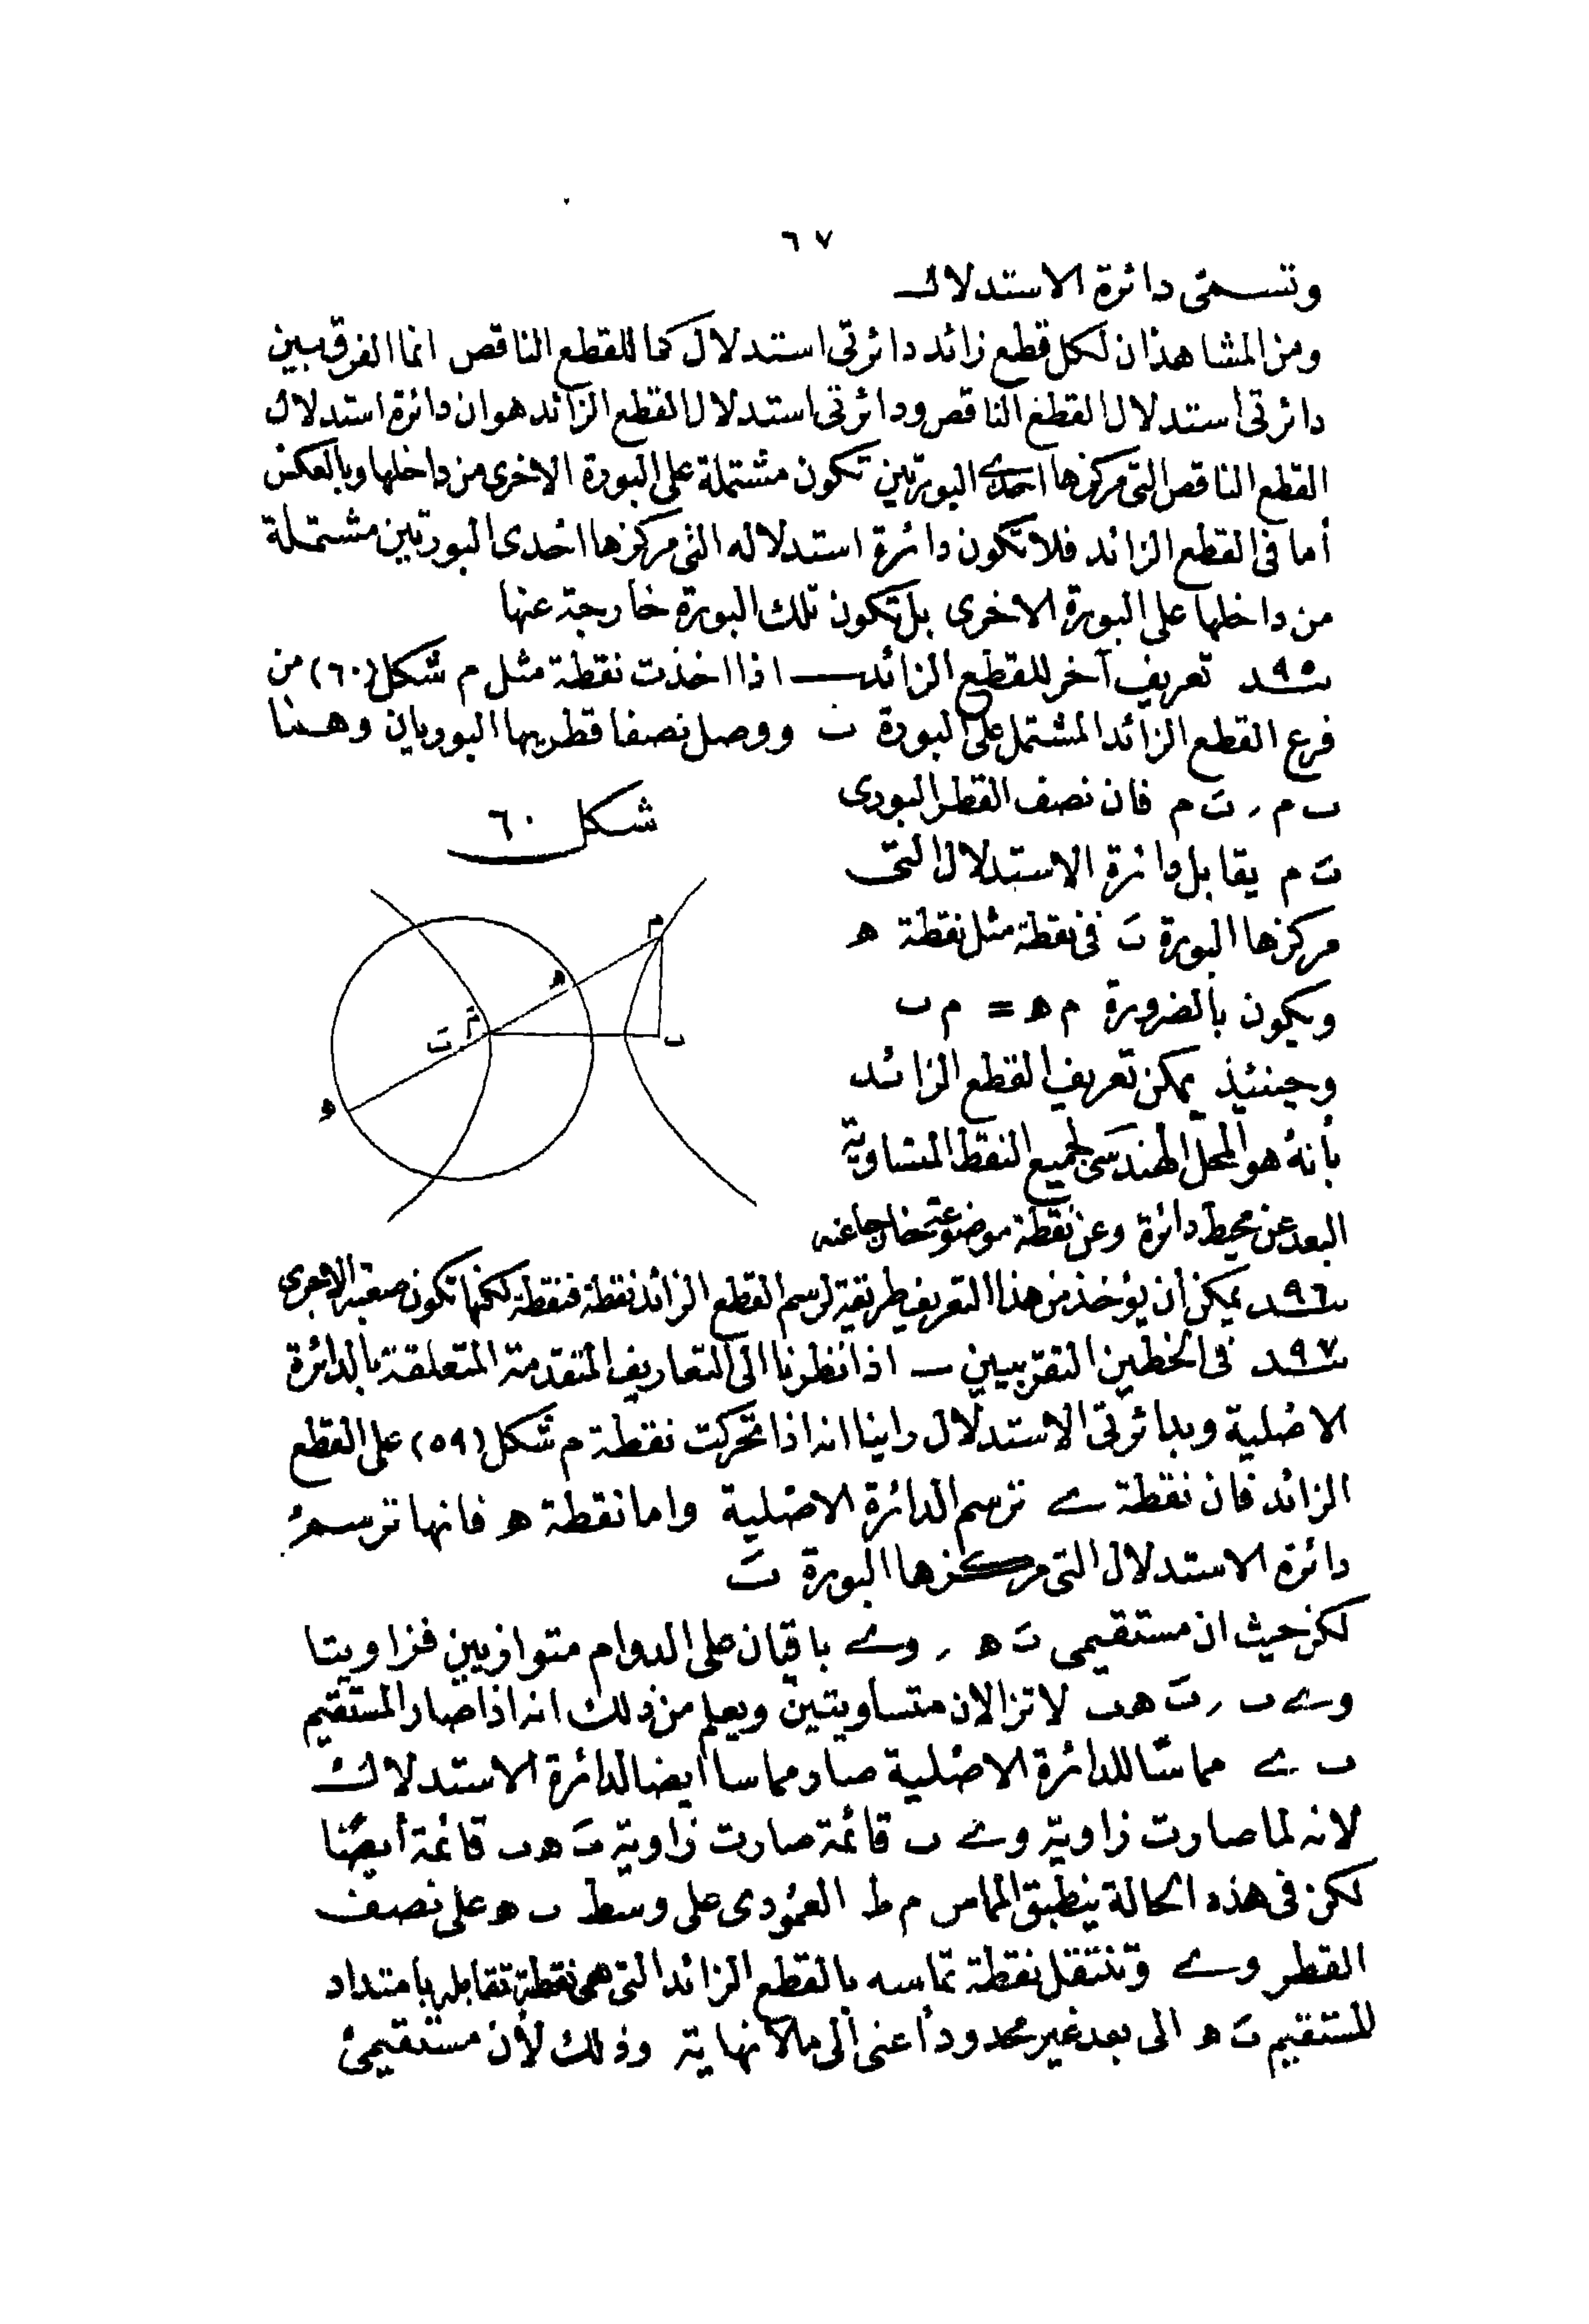 ٦٧
وتسمى دائرة الاستدلال
ومن المشاهد ان لكل قطع زائد دائرتى استدلال كما للقطع الناقص انما الفرق بين
دائرتى استدلال القطع الناقص ودائرتى استدلال القطع الزائد هو ان دائرة استدلال
القطع الناقص التى مركزها احدى البورتين تكون مشتملة على البورة الاخرى من داخلها وبالعكس
أما فى القطع الزائد فلا تكون دائرة استدلاله التى مركزها احدى البورتين مشتملة
من داخلها على البورة الاخرى بل تكون تلك البورة خارجة عنها
٩٥ـد تعريف آخر للقطع الزائد ــ اذا اخذت نقطة مثل م شكل (٦٠) من
فرع القطع الزائد المشتمل على البورة ب ووصل نصفا قطريها البوريان وهـما
ب م ، بَ م فان نصف القطر البورى
شكل ٦٠
بَ م يقابل دائرة الاستدلال التى
مركزها البورة بَ فى نقطة مثل نقطة ھ
ويكون بالضرورة م ھ = م ب
وحينئذ يمكن تعريف القطع الزائد
بأنه هو المحل الهندسى لجميع النقط المتساوية
البعد عن محيط دائرة وعن نقطة موضوعة خارجا عنه
م
ھ
مَ
بَ
ب
ھ
٩٦ـد يمكن أن يؤخذ من هذا التعريف طريقة لرسم القطع الزائد نقطة فنقطة لكنها تكون صعبة الاجرى
٩٧ـد فى الخطين التقربيين ــ اذا نظرنا الى التعاريف المتقدمة المتعلقة بالدائرة
الاصلية وبدائرتى الاستدلال راينا انه اذا تحركت نقطة م شكل (٥٩) على القطع
الزائد فان نقطة ے ترسم الدائرة الاصلية واما نقطة ھ فانها ترسم
دائرة الاستدلال التى مركزها البورة بَ
لكن حيث ان مستقيمى بَ ھ ، و ے باقيان على الدوام متوازيين فزاويتا
و ے ب ، بَ ھ ب لا تزالان متساويتين ويعلم من ذلك انه اذا صار المستقيم
ب ے مماسّا للدائرة الاصلية صار مماسا أيضا لدائرة الاستدلال
لانه لما صارت زاوية و ے ب قائمة صارت زاوية بَ ھ ب قائمة أيضًا
لكن فى هذه الحالة ينطبق المماس م ط العمودى على وسط ب ھ على نصف
القطر و ے وتنتقل نقطة تماسه بالقطع الزائد التى هى نقطة تقابله بامتداد
المستقيم بَ ھ الى بعد غير محدود أعنى الى ما لا نهاية وذلك لأن مستقيمى